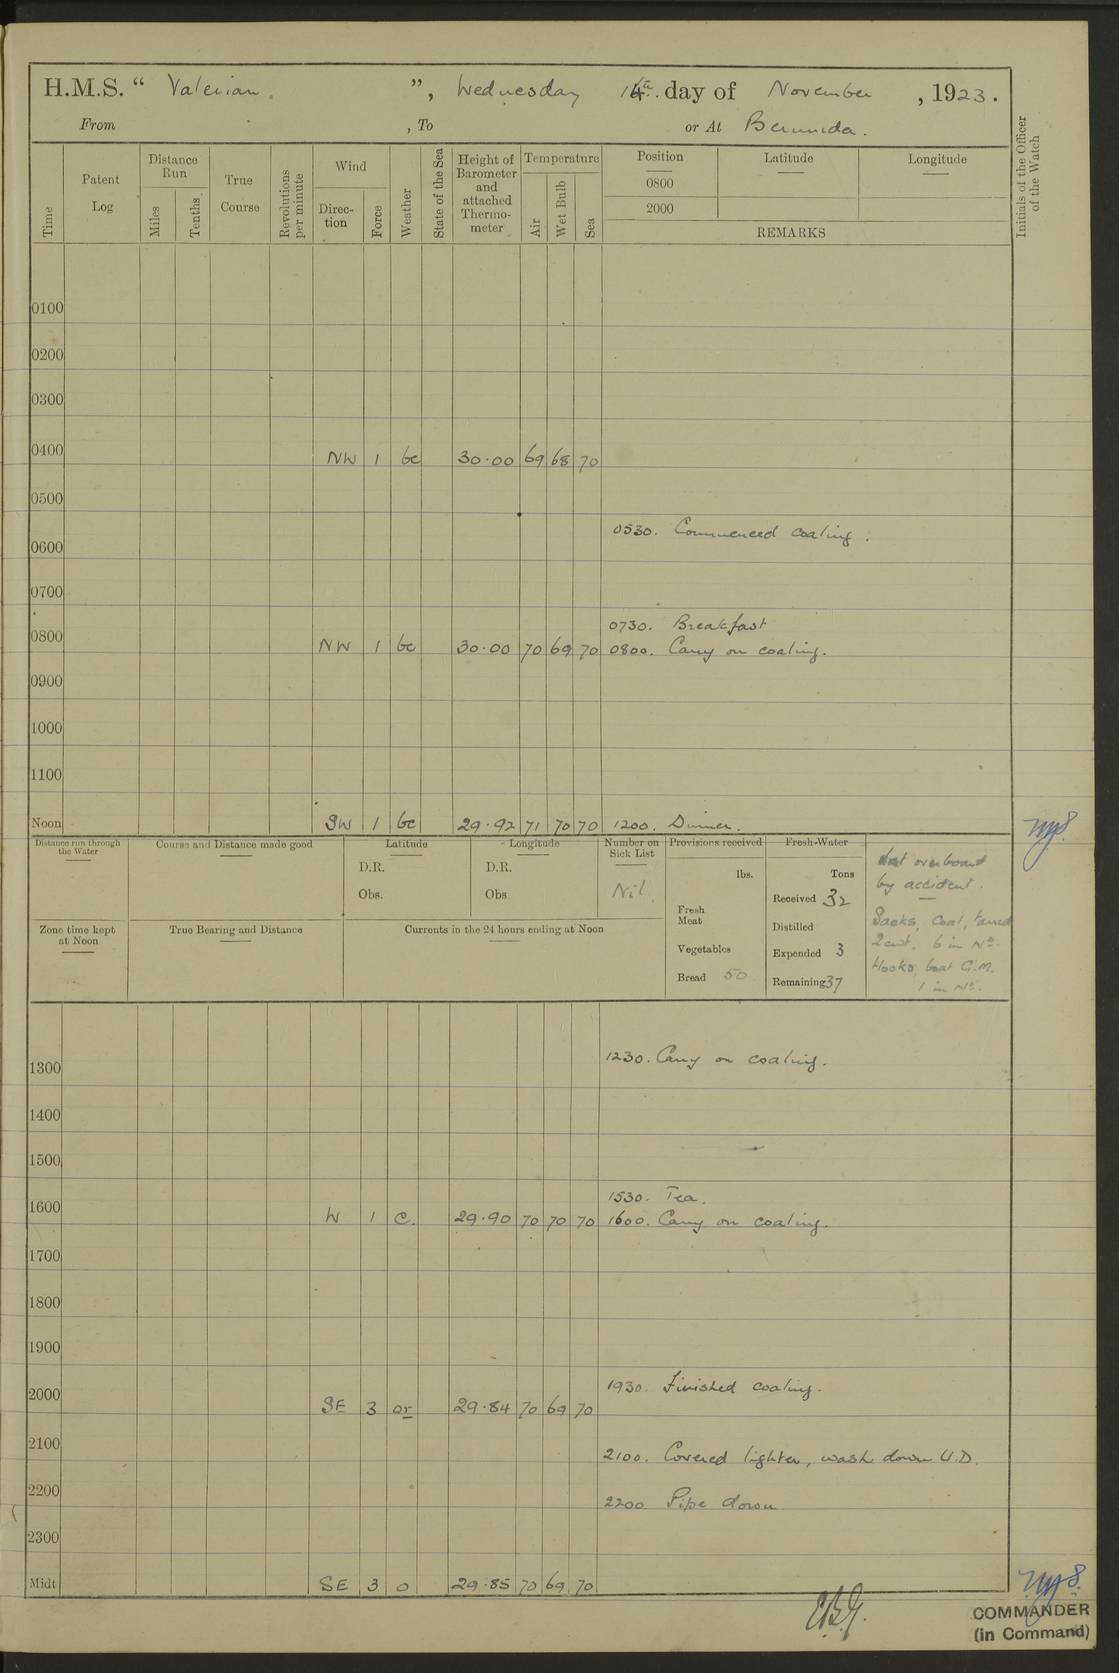 H.M.S. “ Valerian. ”, Wednesday 14th. day of November , 1923.
From , To or At Bermuda.
Time
Patent Log
Distance Run
Miles
Tenths
True Course
Revolutions per minute
Wind
Direc-tion
Force
Weather
State of the Sea
Height of Barometer and attached Thermo-meter
Temperature
Air
Wet Bulb
Sea
Position Latitude Longitude
0800
2000
REMARKS
Initials of the Officer of the Watch
0100
0200
0300
0400 NW 1 bc 30.00 69 68 70
0500
0530. Commenced coaling.
0600
0700
0730. Breakfast
0800 NW 1 bc 30.00 70 69 70 0800. Carry on coaling.
0900
1000
1100
Noon SW 1 bc 29.92 71 70 70 1200. Dinner.
Distance run through the Water
Course and Distance made good
Latitude
D.R.
Obs.
Longitude
D.R.
Obs
Number on Sick List
Nil.
Provisions received
lbs.
Fresh Meat
Vegetables
Bread 50
Fresh-Water
Tons
Received 32
Distilled
Expended 3
Remaining 37
Lost overboard
by accident.
Sacks, coal, tarred
2 cwt. 6 in No.
Hooks, boat G.M.
1 in No.
Zone time kept at Noon
True Bearing and Distance
Currents in the 24 hours ending at Noon
1230. Carry on coaling.
1300
1400
1500
1530. Tea.
1600 W 1 c. 29.90 70 70 70 1600. Carry on coaling.
1700
1800
1900
1930. Finished coaling.
2000 SE 3 or 29.84 70 69 70
2100
2100. Covered lighter, wash down U.D.
2200
2200 Pipe down.
2300
Midt SE 3 o 29.85 70 69 70
COMMANDER
(in Command)